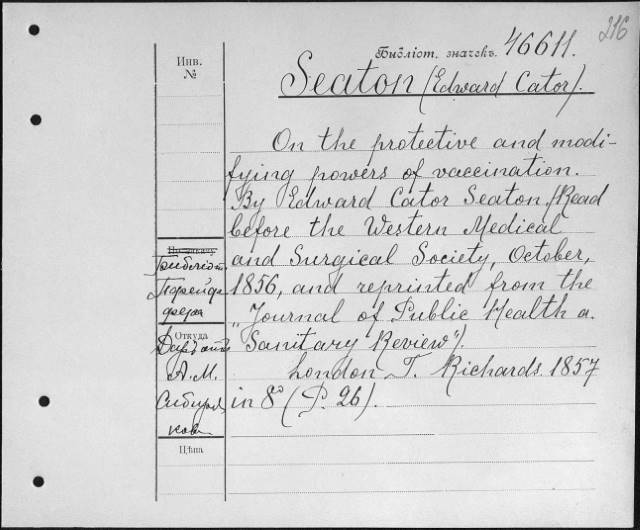 216
Библіот. значекъ. 46611.
Инв.
№
Seaton (Edward Cator).
On the protective and modi-
fying powers of vaccination.
By Edward Cator Seaton. (Read
before the Western Medical
and Surgical Society, October,
1856, and reprinted from the
"Journal of Public Health a.
Sanitary Review").
London T. Richards. 1857
in 8° (P. 26).
Библіот.
Пфейф
фера
Откуда
Даръ отъ
А. М.
Сибиря
кова
Цѣна